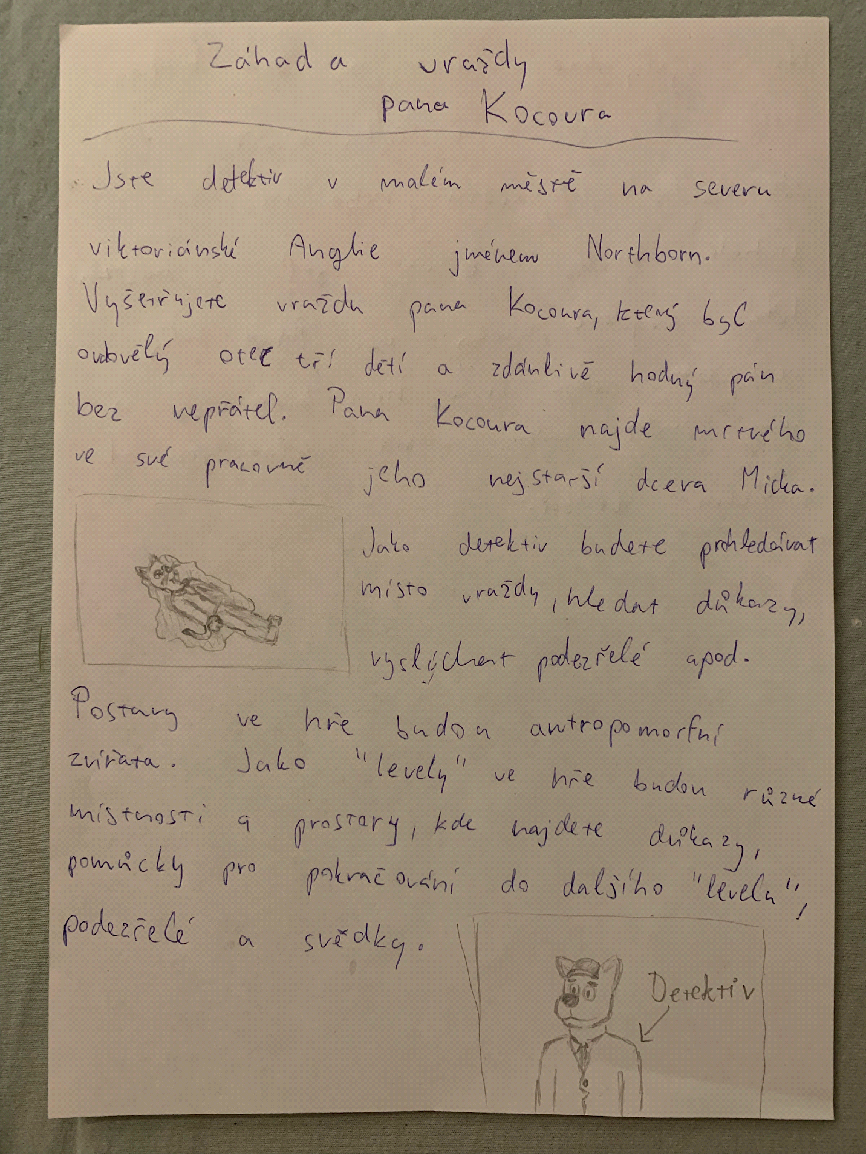 Záhada vraždy
pana Kocoura
Jste detektiv v malém městě na severu
viktoriánské Anglie jménem Northborn.
Vyšetřujete vraždu pana Kocoura, který byl
ovdovělý otec tří dětí a zdánlivě hodný pán
bez nepřátel. Pana Kocoura najde mrtvého
ve své pracovně jeho nejstarší dcera Micka.
Jako detektiv budete prohledávat
místo vraždy, hledat důkazy,
vyslýchat podezřelé apod.
Postavy ve hře budou antropomorfní
zvířata. Jako "levely" ve hře budou různé
místnosti a prostory, kde najdete důkazy,
pomůcky pro pokračování do dalšího "levelu",
podezřelé a svědky.
Detektiv